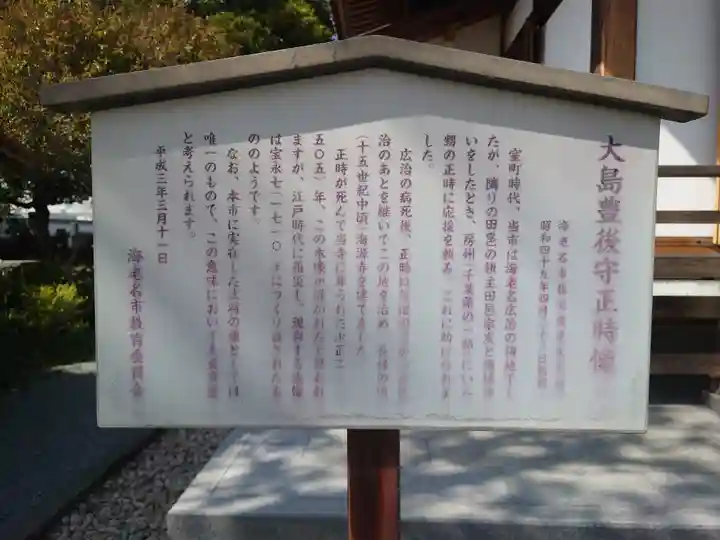 大島豊後守正時像
海老名市指定
昭和四十九年四月二十二日指定
室町時代、当市は海老名広治の領地でし
たが、隣りの田邑の領主田邑宗友と領地争
いをしたとき、房州(千葉県の一部)にいた
甥の正時に応援を頼み、これに助けられま
した。
広治の病死後、正時は
治のあとを継いでこの地を治め
(十五世紀中頃)海源寺を建てました。
正時が死んで当寺に葬られた永正二(一
五〇五)年、この木像が
ますが、江戸時代に罹災し、現存する
は宝永七(一七一〇)年につくり直されたも
ののようです。
なお、本市に実在した武将の像としては
唯一のもので、この意味においても貴重
と考えられます。
平成三年三月十一日
海老名市教育委員会